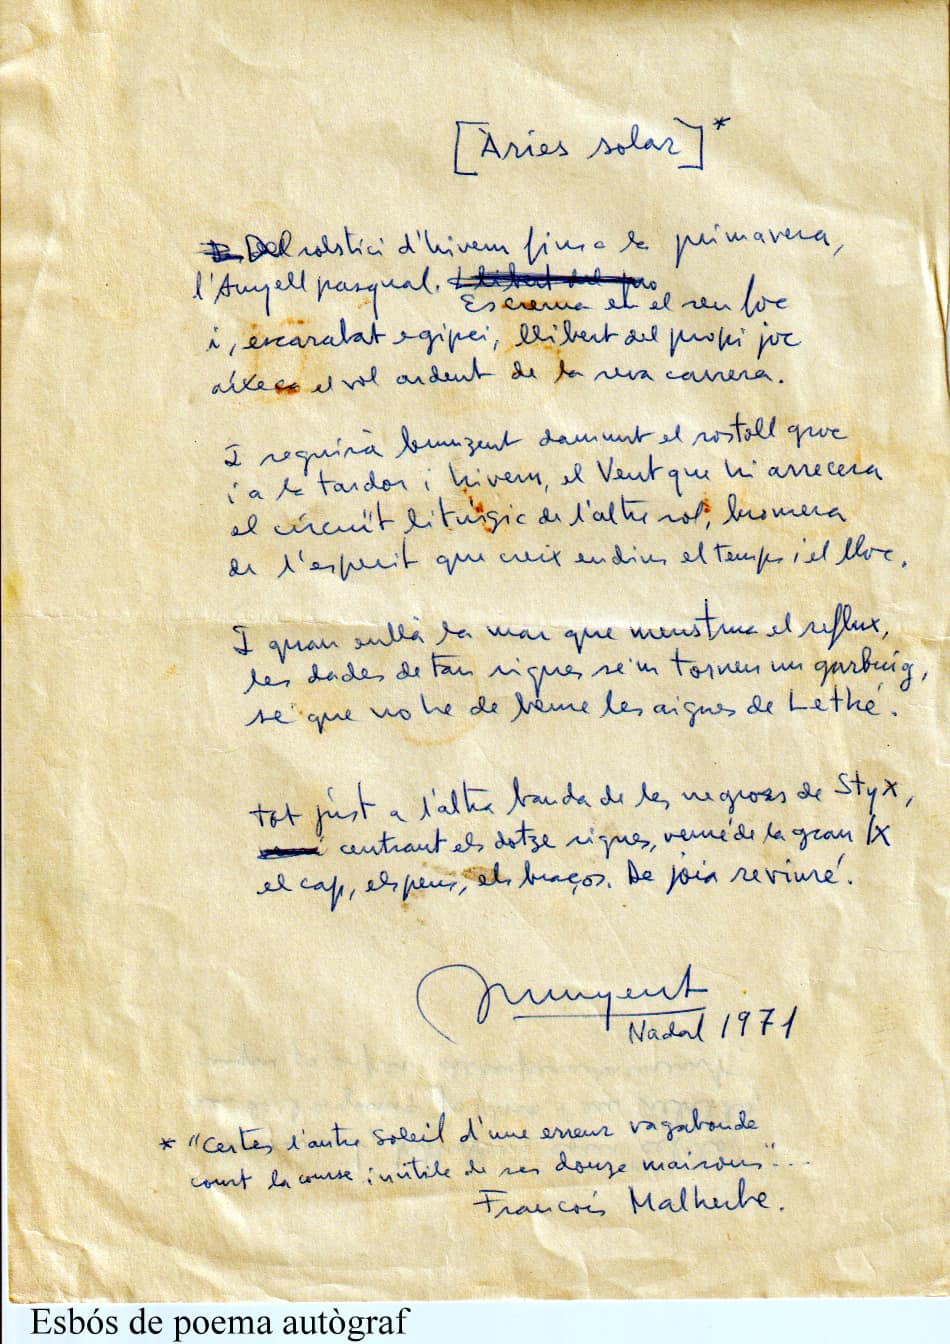 [Àries solar]*
Del solstici d'hivern fins a la primavera,
l'Anyell pasqual. Llibert del pro
Es crema en el seu foc
i, escarabat egipci, llibert del propi joc
aixeca el vol ardent de la seva carrera.
I seguirà brunzent damunt el rostoll groc
i a la tardor i hivern, el Vent que hi arrecera
el circuït litúrgic de l'altre sol, bromera
de l'esperit que creix endins el temps i el lloc.
I quan enllà la mar que menstrua el reflux,
les dades de tan signes se'm tornen un garbuig,
sé que no he de beure les aigues de Lethé.
tot júst a l'altra banda de les negroses de Styx,
centrant els dotze signes, vindré de la gran
el cap, els peus, els braços. De joia reviuré.
Nadal 1971
* "Certes l'autre soleil d'une erreur vagabonde
court la course inutile de ses douze maisons"...
François Malherbe.
Esbós de poema autògraf